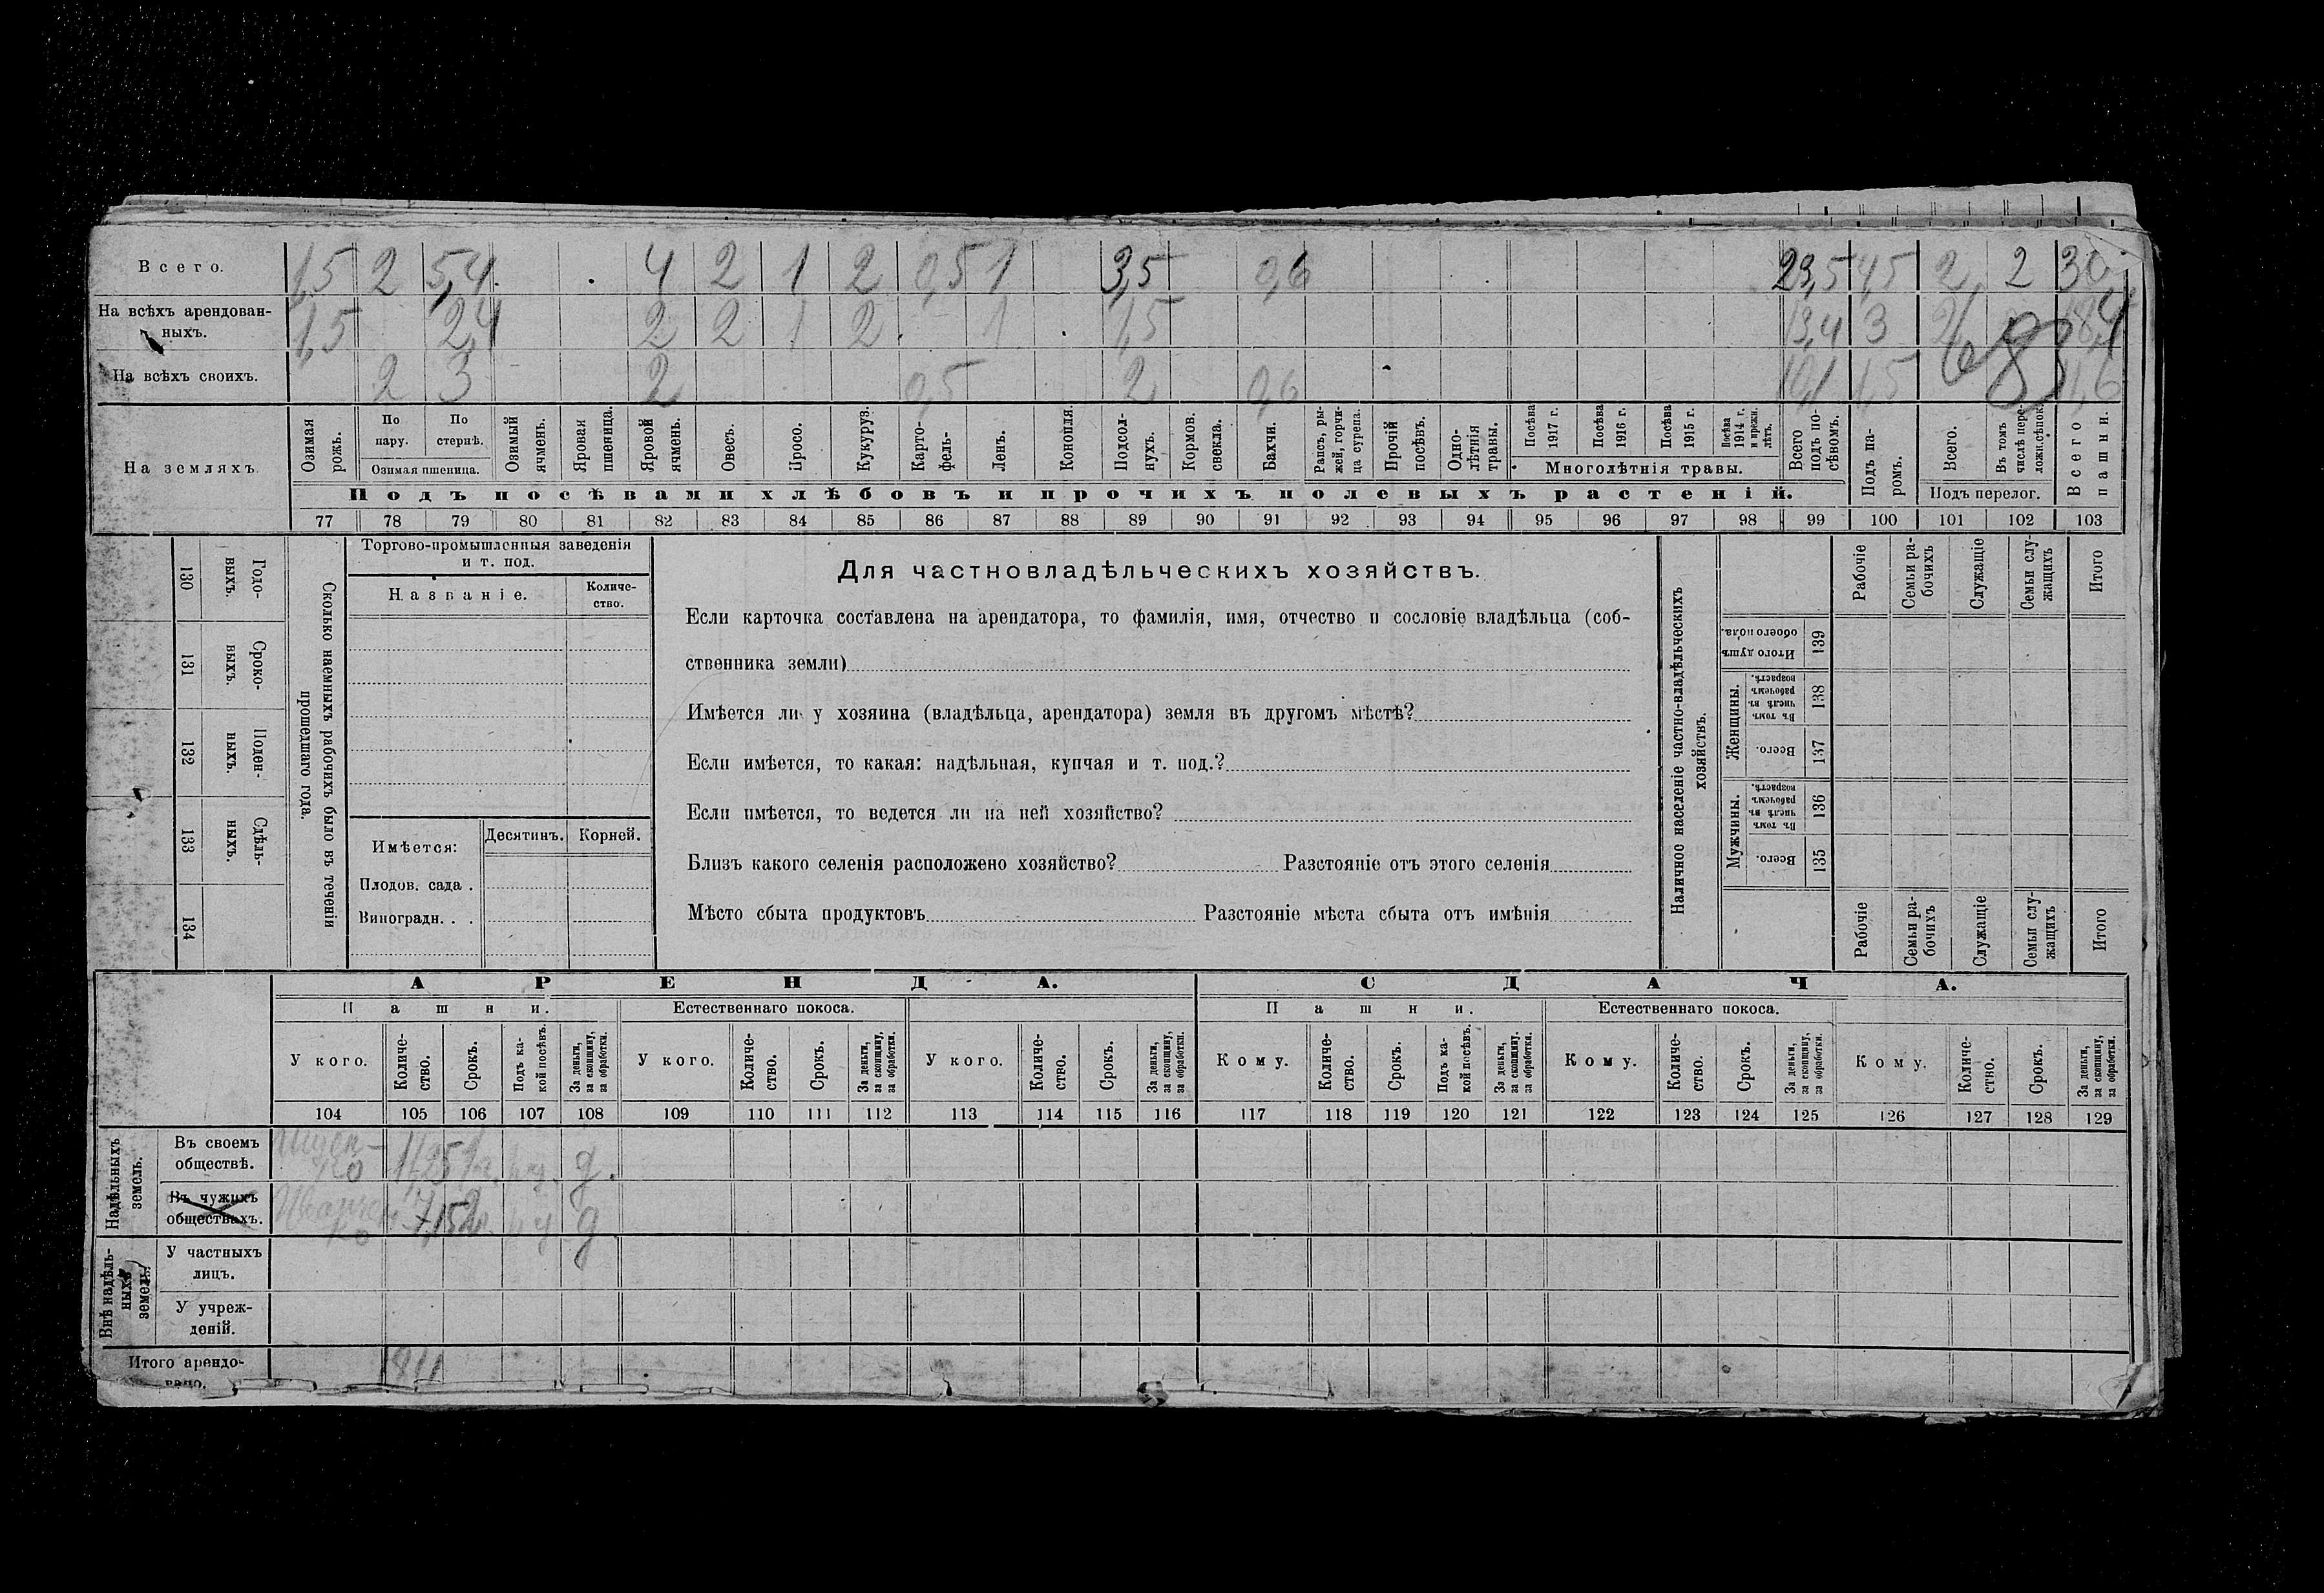 Всего. 1,5 2 5,4 4 2 1 2 0,5 1 3,5 0,6 23,5 4,5 2 2 30
На всѣхъ арендован-
ныхъ. 1,5 2,4 2 2 1 2 1 1,5 13,4 3 2 18,4
На всѣхъ своихъ. 2 3 2 0,5 2 0,6 10,1 1,5 11,6
На земляхъ
Озимая рожь.
По пару.
По стернѣ.
Озимая пшеница.
Озимый ячмень.
Яровая пшеница.
Яровой ячмень.
Овесъ.
Просо.
Кукуруз.
Карто-
фель-
Ленъ.
Конопля.
Подсол-
нухъ.
Кормов. свекла.
Бахчи.
Рапсъ, ры-
жей, горчи-
ца сурепа.
Прочій посѣвъ.
Одно-
лѣтнія травы.
Посѣва 1917 г.
Посѣва 1916 г.
Посѣва 1915 г.
Посѣва 1914 г. и прежн. лѣтъ.
Многолѣтнія травы.
Всего подъ по-
сѣвомъ.
Подъ па-
ромъ.
Всего.
Въ томъ числѣ пере-
ложн.сѣнок.
Подъ перелог.
Всего пашни.
Подъ посѣвами хлѣбовъ и прочихъ полевыхъ растеній.
77 78 79 80 81 82 83 84 85 86 87 88 89 90 91 92 93 94 95 96 97 98 99 100 101 102 103
130 Годо-
ныхъ.
131 Сроко-
ныхъ.
132 Поден-
ныхъ.
133 Сдѣль-
ныхъ.
134
Сколько наемныхъ рабочихъ было въ теченіи
прошедшаго года.
Торгово-промышленныя заведенія
и т. под.
Названіе.
Количе-
ство.
Имѣется:
Десятинъ. Корней.
Плодов. сада .
Виноградн. . .
Для частновладѣльческихъ хозяйствъ.
Если карточка составлена на арендатора, то фамилія, имя, отчество и сословіе владѣльца (соб-
ственника земли)
Имѣется ли у хозяина (владѣльца, арендатора) земля въ другомъ мѣстѣ?
Если имѣется, то какая: надѣльная, купчая и т. под.?
Если имѣется, то ведется ли на ней хозяйство?
Близъ какого селенія расположено хозяйство? Разстояніе отъ этого селенія
Мѣсто сбыта продуктовъ Разстояніе мѣста сбыта отъ имѣнія
Наличное населеніе частно-владѣльческихъ
хозяйствъ.
Рабочіе
Семьи ра-
бочихъ
Служащіе
Семьи слу-
жащихъ
Итого
Итого душъ обоего пола. 139
Женщины.
Въ томъ числѣ въ рабочемъ возрастѣ. 138
Всего. 137
Мужчины.
Въ томъ числѣ въ рабочемъ возрастѣ. 136
Всего. 135
Рабочіе
Семьи ра-
бочихъ
Служащіе
Семьи слу-
жащихъ
Итого
АРЕНДА. СДАЧА.
Пашни. Естественнаго покоса. Пашни. Естественнаго покоса.
У кого.
Количе-
ство.
Срокъ.
Подъ ка-
кой посѣвъ.
За деньги, за скопщину, за обработки.
У кого.
Количе-
ство.
Срокъ.
За деньги, за скопщину, за обработки.
У кого.
Количе-
ство.
Срокъ.
За деньги, за скопщину, за обработки.
Кому.
Количе-
ство.
Срокъ.
Подъ ка-
кой посѣвъ.
За деньги, за скопщину, за обработки.
Кому.
Количе-
ство.
Срокъ.
За деньги, за скопщину, за обработки.
Кому.
Количе-
ство.
Срокъ.
За деньги, за скопщину, за обработки.
104 105 106 107 108 109 110 111 112 113 114 115 116 117 118 119 120 121 122 123 124 125 126 127 128 129
Надѣльныхъ
земель.
Въ своемъ
обществѣ. 11,25 д.
Въ чужихъ
обществахъ. Иванчен-
ко 7,15 д
Внѣ надѣль-
ныхъ
земель.
У частныхъ
лицъ.
У учреж-
деній.
Итого арендо-
вано.